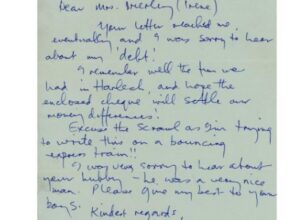 Dear Mrs. Brierley (Irene)
Your letter reached me,
eventually and I was sorry to hear
about my 'debt'.
I remember well the fun we
had in Harlech, and hope the
enclosed cheque will settle our
money differences!
Excuse the scrawl as I'm trying
to write this on a bouncing
express train!!
I was very sorry to hear about
your hubby - he was a very nice
man. Please give my best to your
boys.
Kindest regards,